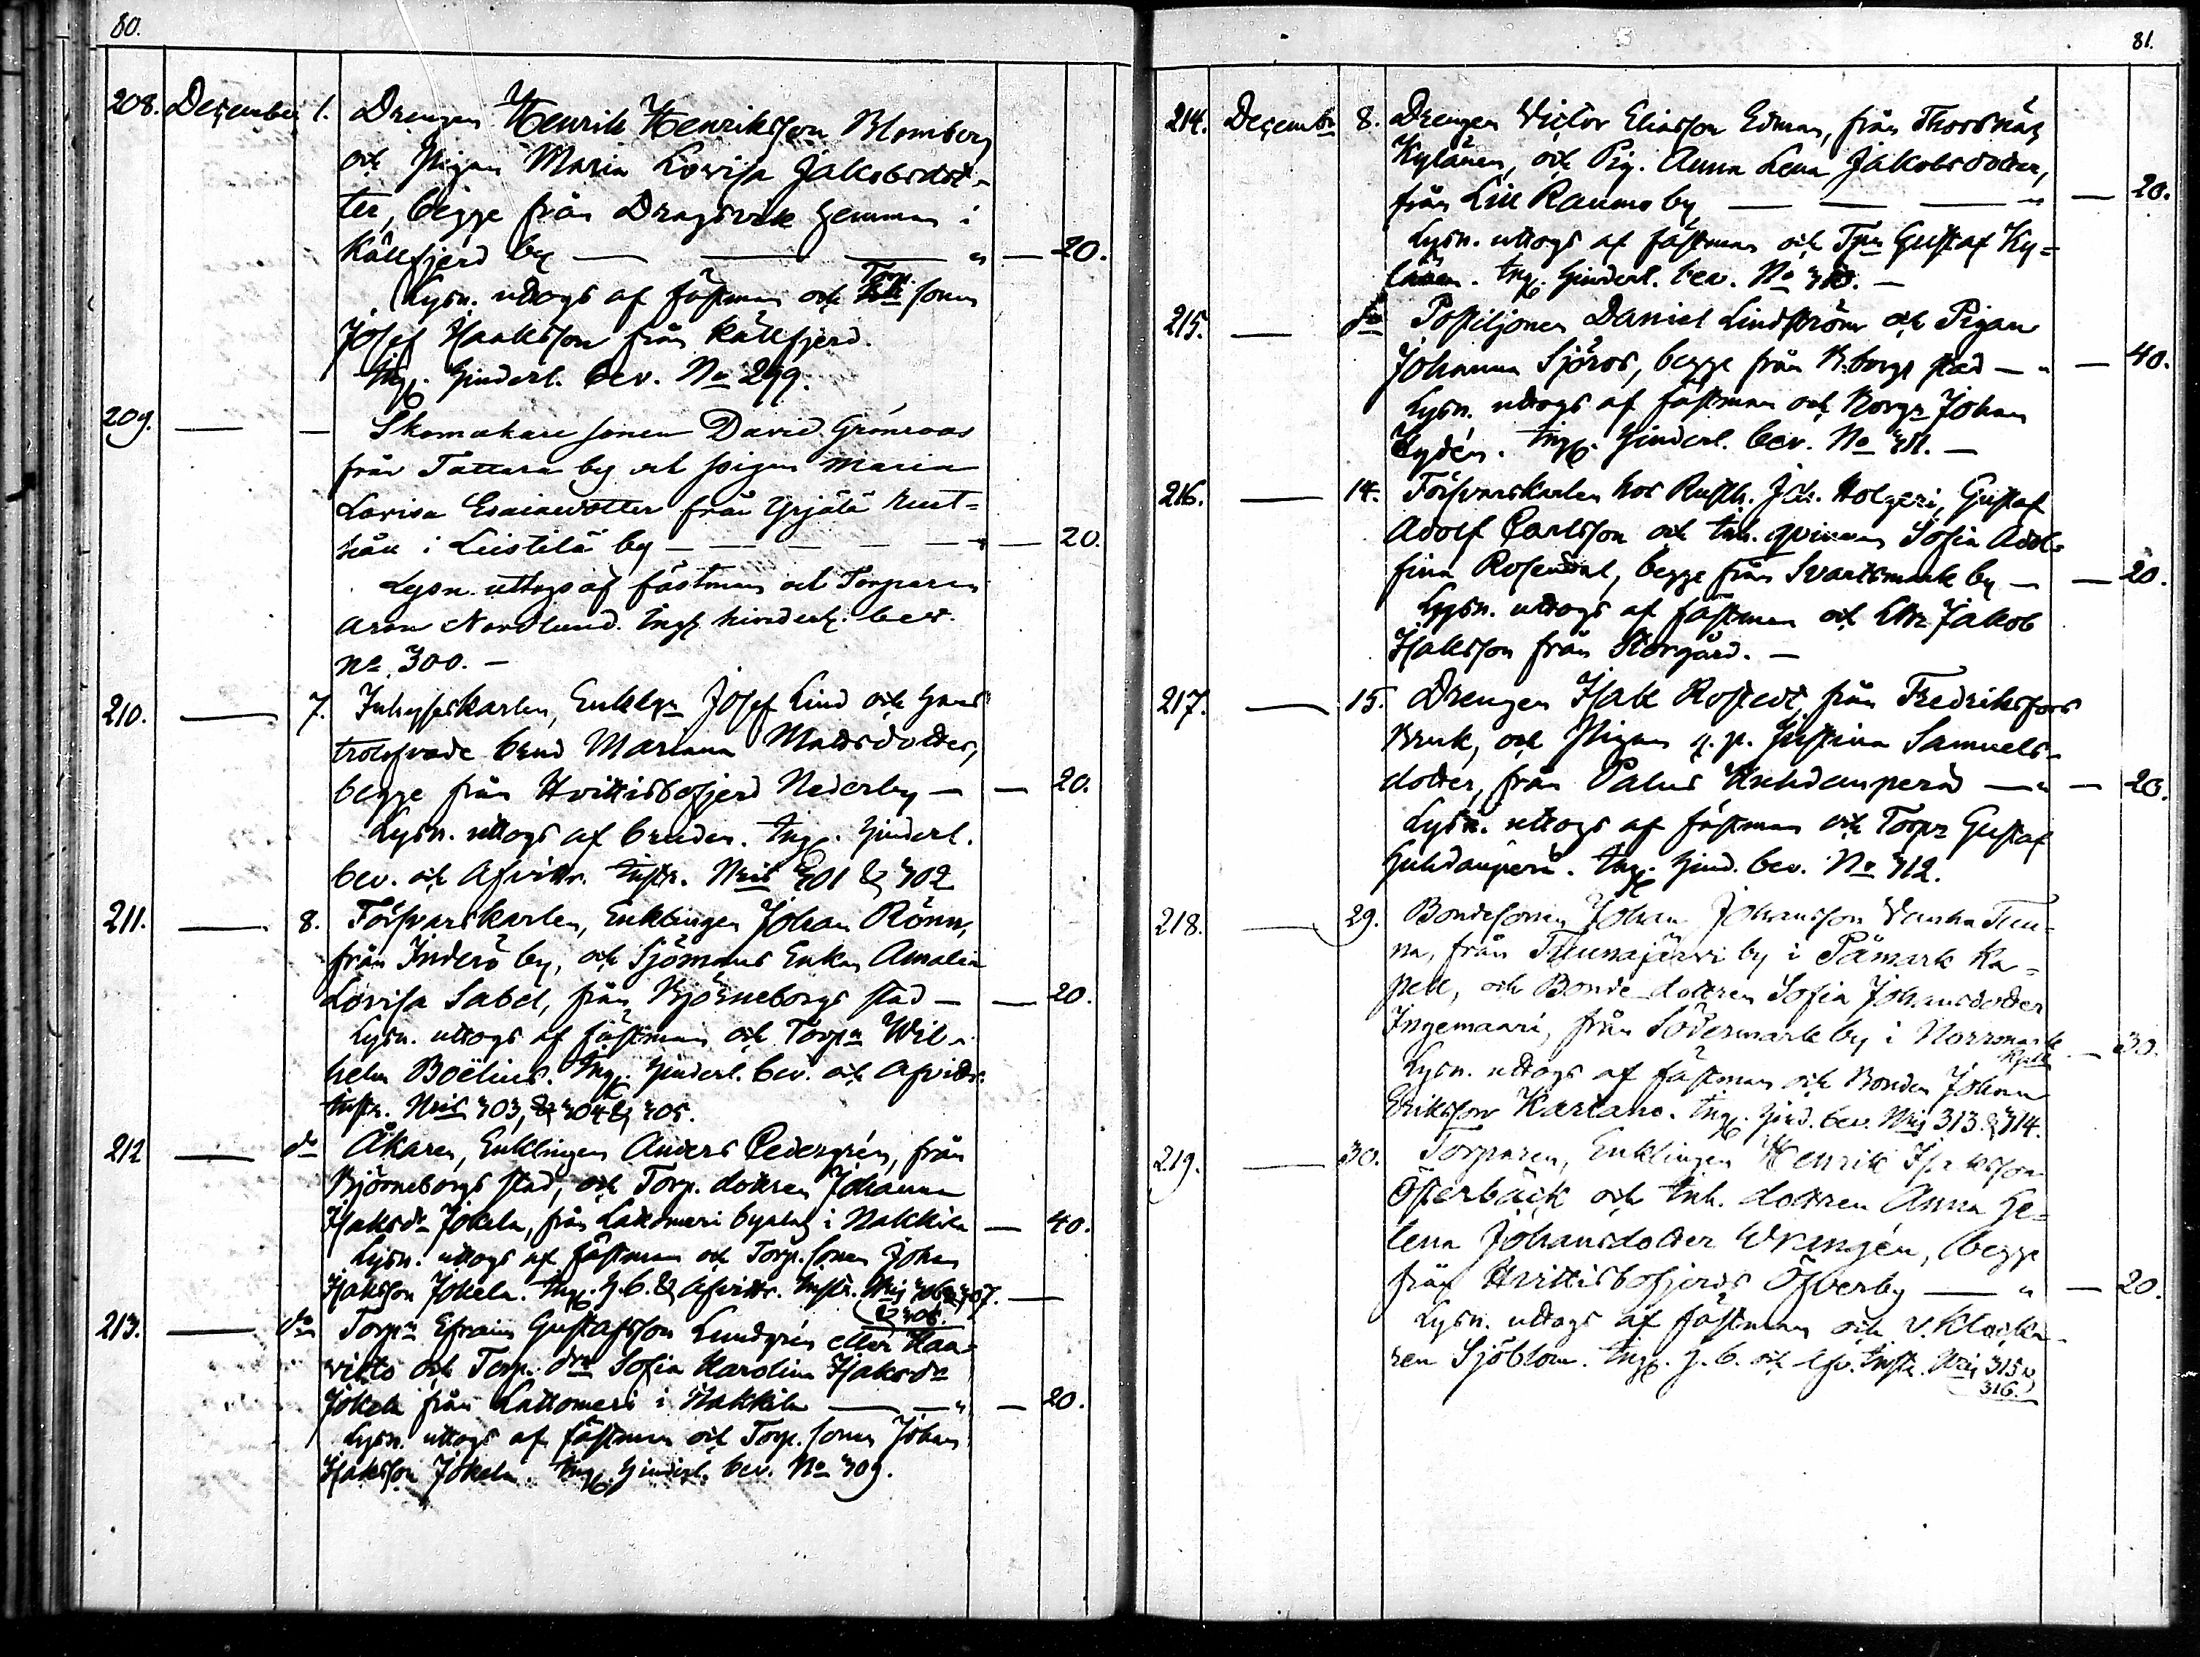 80.
208. December 1. Drengen Henrik Henriksson Blomberg
och Pigan Maria Lovisa Jakobsdot-
ter, begge från Dragsvik hemman i
Källfjerd by — — — " — 20.
Lysn. uttogs af fästman och Torp. sonen
Josef Isaksson från Källfjerd.
Ing. hinderl. bev. No 299.
209. — — Skomakare sonen David Grönroos
från Tattara by och pigan Maria
Lovisa Esaiaedotter från Yrjälä rust-
håll i Leistilä by — — — — — " — 20.
Lysn. uttogs af fästman och Torparen
Aron Nordlund. Ing. hinderl. bev.
No 300. —
210. — 7. Inhyseskarlen, Enklgn Josef Lind och hans
trolofvade brud Mariana Mattsdotter,
begge från Hvittisbofjerd Nederby — — 20.
Lysn. uttogs af bruden. Ing. hinderl.
bev. och Afvittr. Instr. Nris 301 & 302
211. — 8. Försvarskarlen, Enklingen Johan Rönn,
från Inderö by, och Sjömans Enkan Amalia
Lovisa Sabel, från Björneborgs stad — — 20.
Lysn. uttogs af fästman och Torpn Wil-
helm Boëlius. Ing. hinderl. bev. och Afvittr.
Instr. Nris 303, & 304 & 305.
212 — do Åkaren, Enklingen Anders Cedergrén, från
Björneborgs stad, och Torp. dottren Johanna
Isaksdr Jokela, från Lattomeri byalag i Nakkila — 40.
Lysn. uttogs af fästman och Torp. sonen Johan
Isaksson Jokela. Ing. h. b. & Afvittr. Instr. Nris 306 & 307. —
& 308.
213. — do Torpn Efraim Gustafsson Lundgrén eller Haa-
visto och Torp. dtr Sofia Karolina Isaksdr
Jokela från Lattomeri i Nakkila — — " — 20.
Lysn. uttogs af fästman och Torp. sonen Johan
Isaksson Jokela. Ing. hinderl. bev. No 309.
81.
214. December 8. Drengen Victor Eliasson Edman, från Thorsnäs
Kylänen, och Pig. Anna Lena Jakobsdotter,
från Lill Raumo by — — — " — 20.
Lysn. uttogs af fästman och Tpn Gustaf Ky-
länen. Ing. hinderl. bev. No 310. —
215. — do Postiljonen Daniel Lindström och Pigan
Johanna Sjöros, begge från B:borgs stad — " — 40.
Lysn. uttogs af fästman och Borgn Johan
Lydén. Ing. hinderl. bev. No 311. —
216. — 14. Försvarskarlen hos Rusth. Joh. Holgeri, Gustaf
Adolf Carlsson och Inh. qvinnan Sofia Adol-
fina Rosendal, begge från Svartsmark by — — 20.
Lysn. uttogs af fästman och Jakob
Isaksson från Storgård. —
217. — 15. Drengen Isak Rostedt, från Fredriksfors
Bruk, och Pigan Justina Samuels-
dotter, från Palus Huhdanperä — " — 20.
Lysn. uttogs af fästman och Torpn Gustaf
Huhdanperä. Ing. hind. bev. No 312.
218. — 29. Bondesonen Johan Johansson Vanha Tuu-
na, från Tuunajärvi by i Påmark Ka-
pell, och Bonde dottren Sofia Johansdotter
Ingemaari, från Södermark by i Norrmark
Kpll — 30.
Lysn. uttogs af fästman och Bonden Johan
Eriksson Kartano. Ing. hind. bev. Nris 313 & 314.
219. — 30. Torparen, Enklingen Henrik Isaksson
Österback och Inh. dottren Anna He-
lena Johansdotter Wrangén, begge
från Hvittisbofjerds Öfverby — " — 20.
Lysn. uttogs af fästman och v. Klocka-
ren Sjöblom. Ing. h. b. och Afv. Instr. Nris 315 &
316.